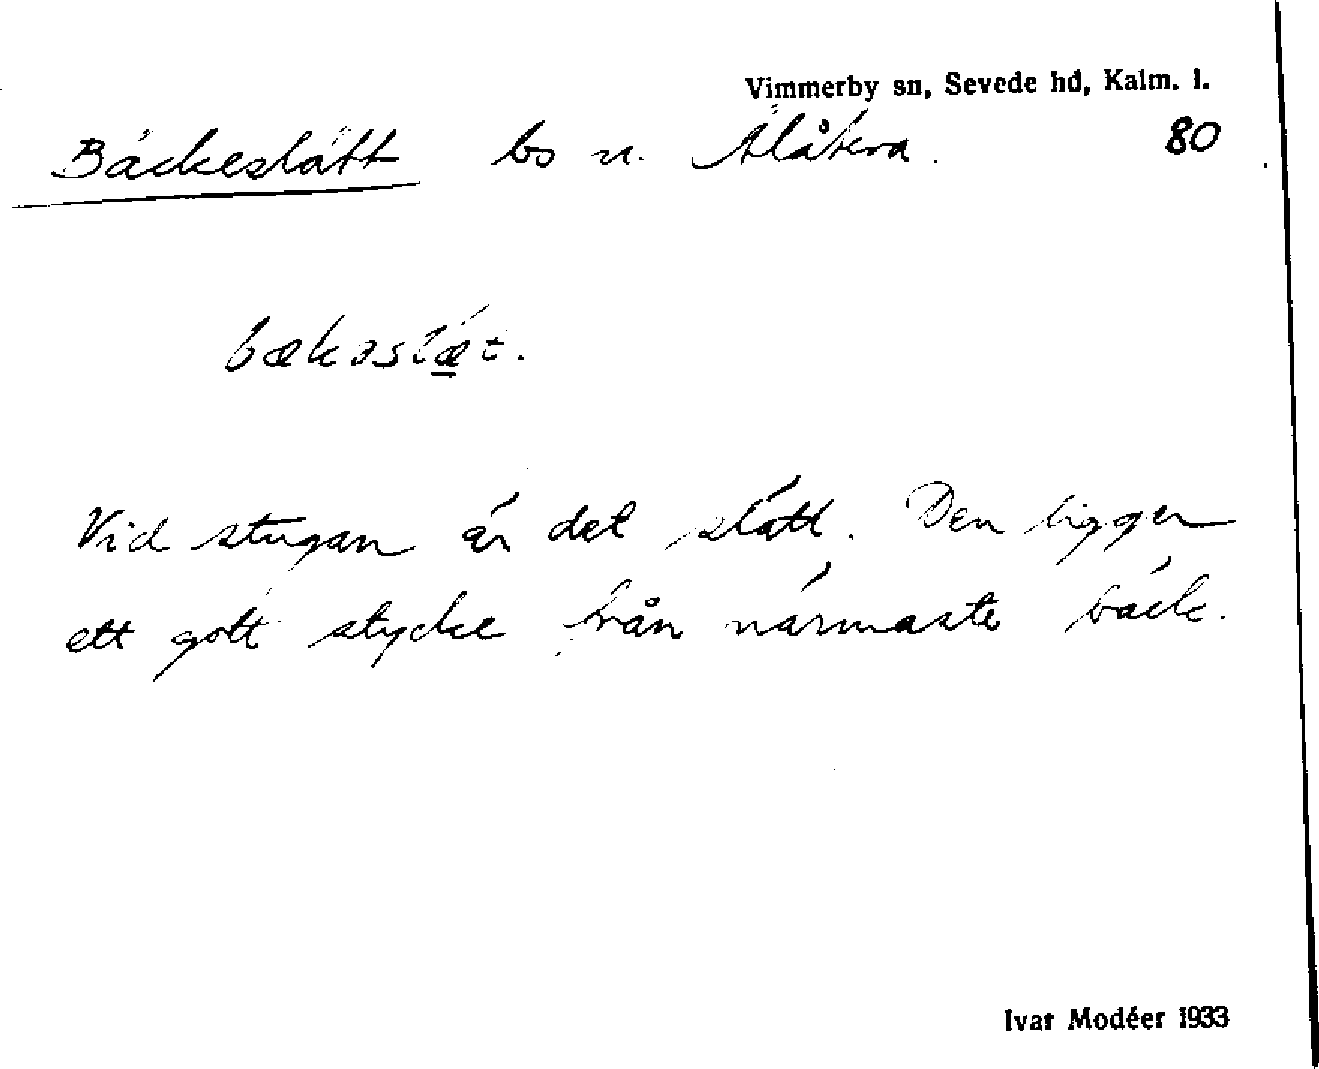 Vimmerby sn, Sevede hd, Kalm. l.
Bäckeslätt bs u. Älåkra. 80
bækəslæt.
Vid stugan är det slätt. Den ligger
ett gott stycke från närmaste bäck.
Ivar Modéer 1933